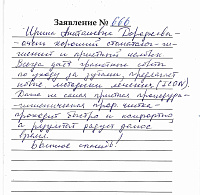 Заявление № 666
Ирина Анатольевна Дорофеева -
очень хороший стоматолог-ги-
гиенист и приятный человек.
Всегда даёт грамотные советы
по уходу за зубами, предлагает
новые методики лечения (ICON).
Даже не самая приятная процедура -
гигиеническая проф. чистка -
проходит быстро и комфортно,
а результат радует долгое
время.
Большое спасибо!